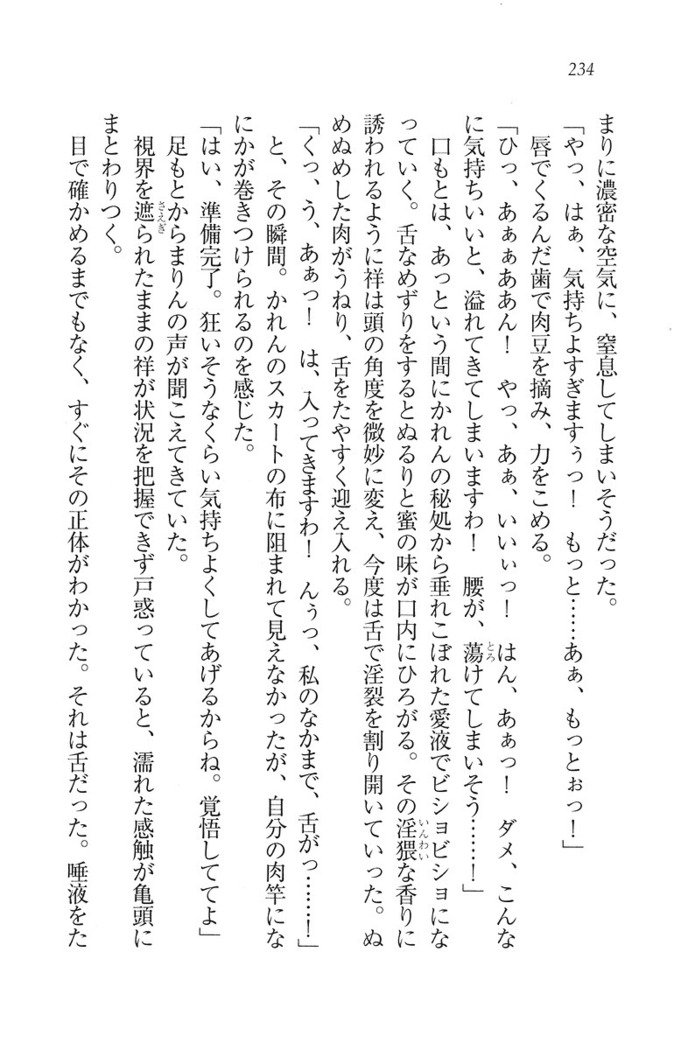 234
まりに濃密な空気に、窒息してしまいそうだった。
「やっ、はぁ、気持ちよすぎますぅっ！　もっと……あぁ、もっとぉっ！」
唇でくるんだ歯で肉豆を摘み、力をこめる。
「ひっ、あぁぁああん！　やっ、あぁ、いいぃっ！　はん、あぁっ！　ダメ、こんな
に気持ちいいと、溢れてきてしまいますわ！　腰が、蕩けてしまいそう……！」
口もとは、あっという間にかれんの秘処から垂れこぼれた愛液でビショビショにな
っていく。舌なめずりをするとぬるりと蜜の味が口内にひろがる。その淫猥な香りに
誘われるように祥は頭の角度を微妙に変え、今度は舌で淫裂を割り開いていった。ぬ
めぬめした肉がうねり、舌をたやすく迎え入れる。
「くっ、う、あぁっ！　は、入ってきますわ！　んぅっ、私のなかまで、舌がっ……！」
と、その瞬間。かれんのスカートの布に阻まれて見えなかったが、自分の肉竿にな
にかが巻きつけられるのを感じた。
「はい、準備完了。狂いそうなくらい気持ちよくしてあげるからね。覚悟しててよ」
足もとからまりんの声が聞こえてきていた。
視界を遮られたままの祥が状況を把握できず戸惑っていると、濡れた感触が亀頭に
まとわりつく。
目で確かめるまでもなく、すぐにその正体がわかった。それは舌だった。唾液をた